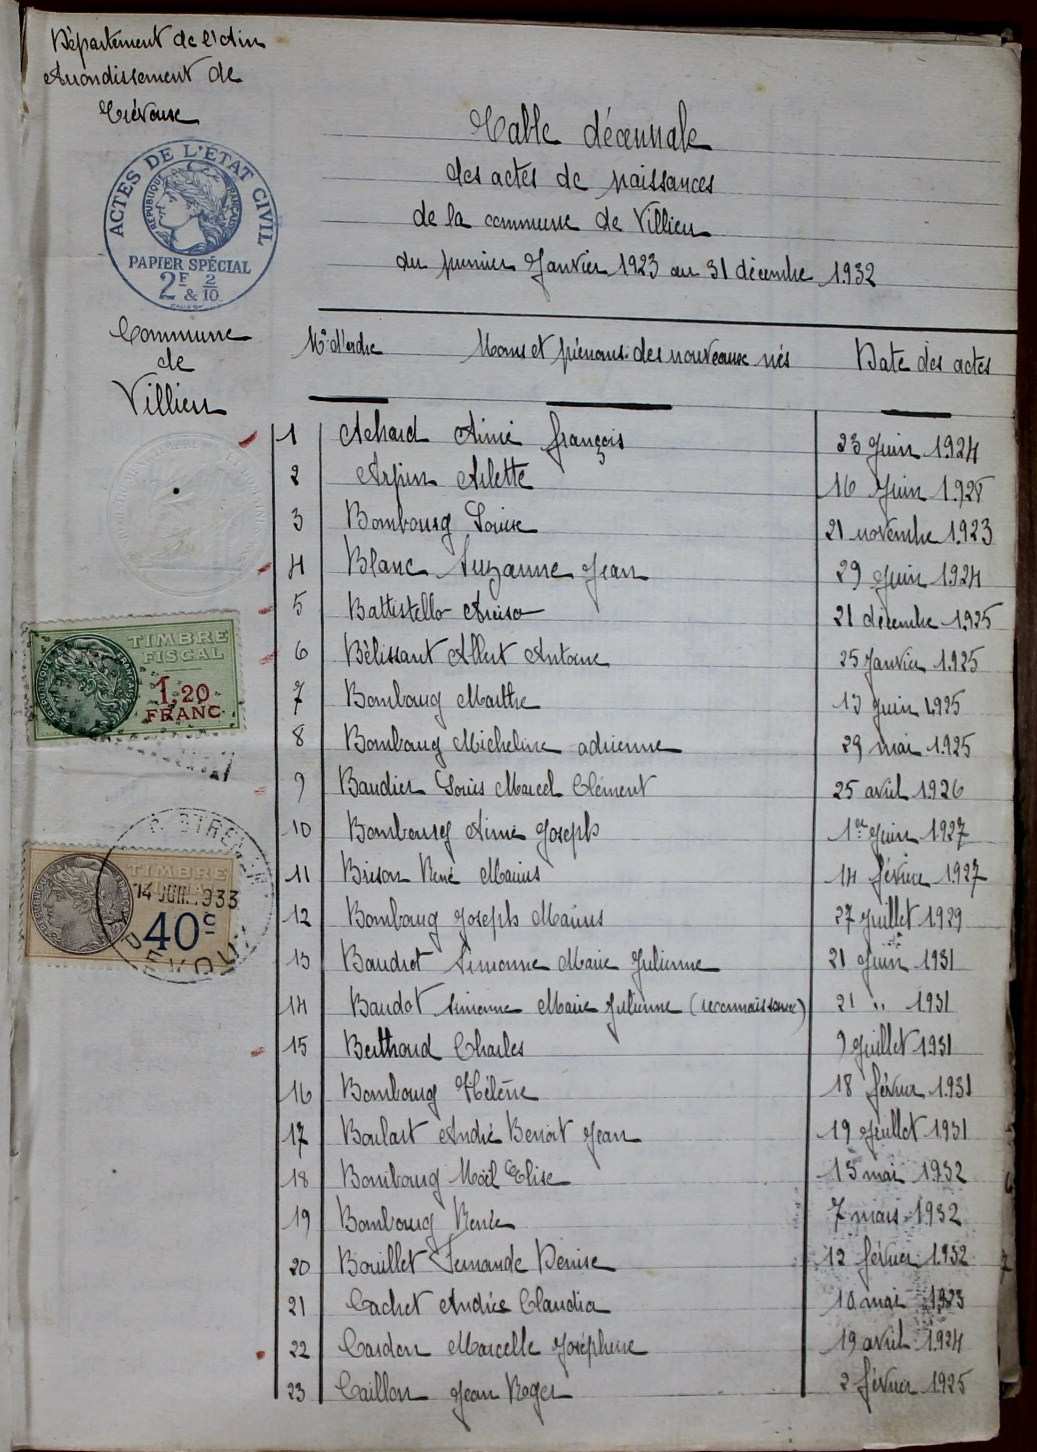 Département de l'Ain
Arrondissement de
Trévoux
ACTES DE L'ÉTAT CIVIL
RÉPUBLIQUE FRANÇAISE
PAPIER SPÉCIAL
2F & 2/10
Commune
de
Villieu
Table décennale
des actes de naissances
de la commune de Villieu
du premier Janvier 1923 au 31 décembre 1932
N° d'ordre Noms et prénoms des nouveaux nés Date des actes
1 Achard Aimé françois 23 Juin 1924
2 Arpin Arlette 16 Juin 1928
3 Bombourg Louise 21 novembre 1923
4 Blanc Suzanne Jean 29 Juin 1924
5 Battistello 21 décembre 1925
6 Bélissant Albert Antoine 25 Janvier 1925
7 Bombourg Marthe 13 Juin 1925
8 Bombourg Micheline adrienne 29 mai 1925
9 Baudier Louis Marcel Clément 25 avril 1926
10 Bombourg Aimé Joseph 1er Juin 1927
11 Brison René Marius 14 février 1927
12 Bombourg Joseph Marius 27 Juillet 1929
13 Baudrot Simonne Marie Julienne 21 Juin 1931
14 Baudot Simonne Marie Julienne (reconnaissance) 21 " 1931
15 Berthoud Charles 9 Juillet 1931
16 Bombourg Hélène 18 février 1931
17 Boulart André Benoit Jean 19 Juillet 1931
18 Bombourg Noël Elise 15 mai 1932
19 Bombourg Renée 7 mars 1932
20 Bouillet Fernande Denise 12 février 1932
21 Cachet Andrée Claudia 10 mai 1923
22 Cardon Marcelle Joséphine 19 avril 1924
23 Caillon Jean Roger 2 février 1925
TIMBRE
FISCAL
1,20
FRANC
TIMBRE
14 JUIL 1933
40c